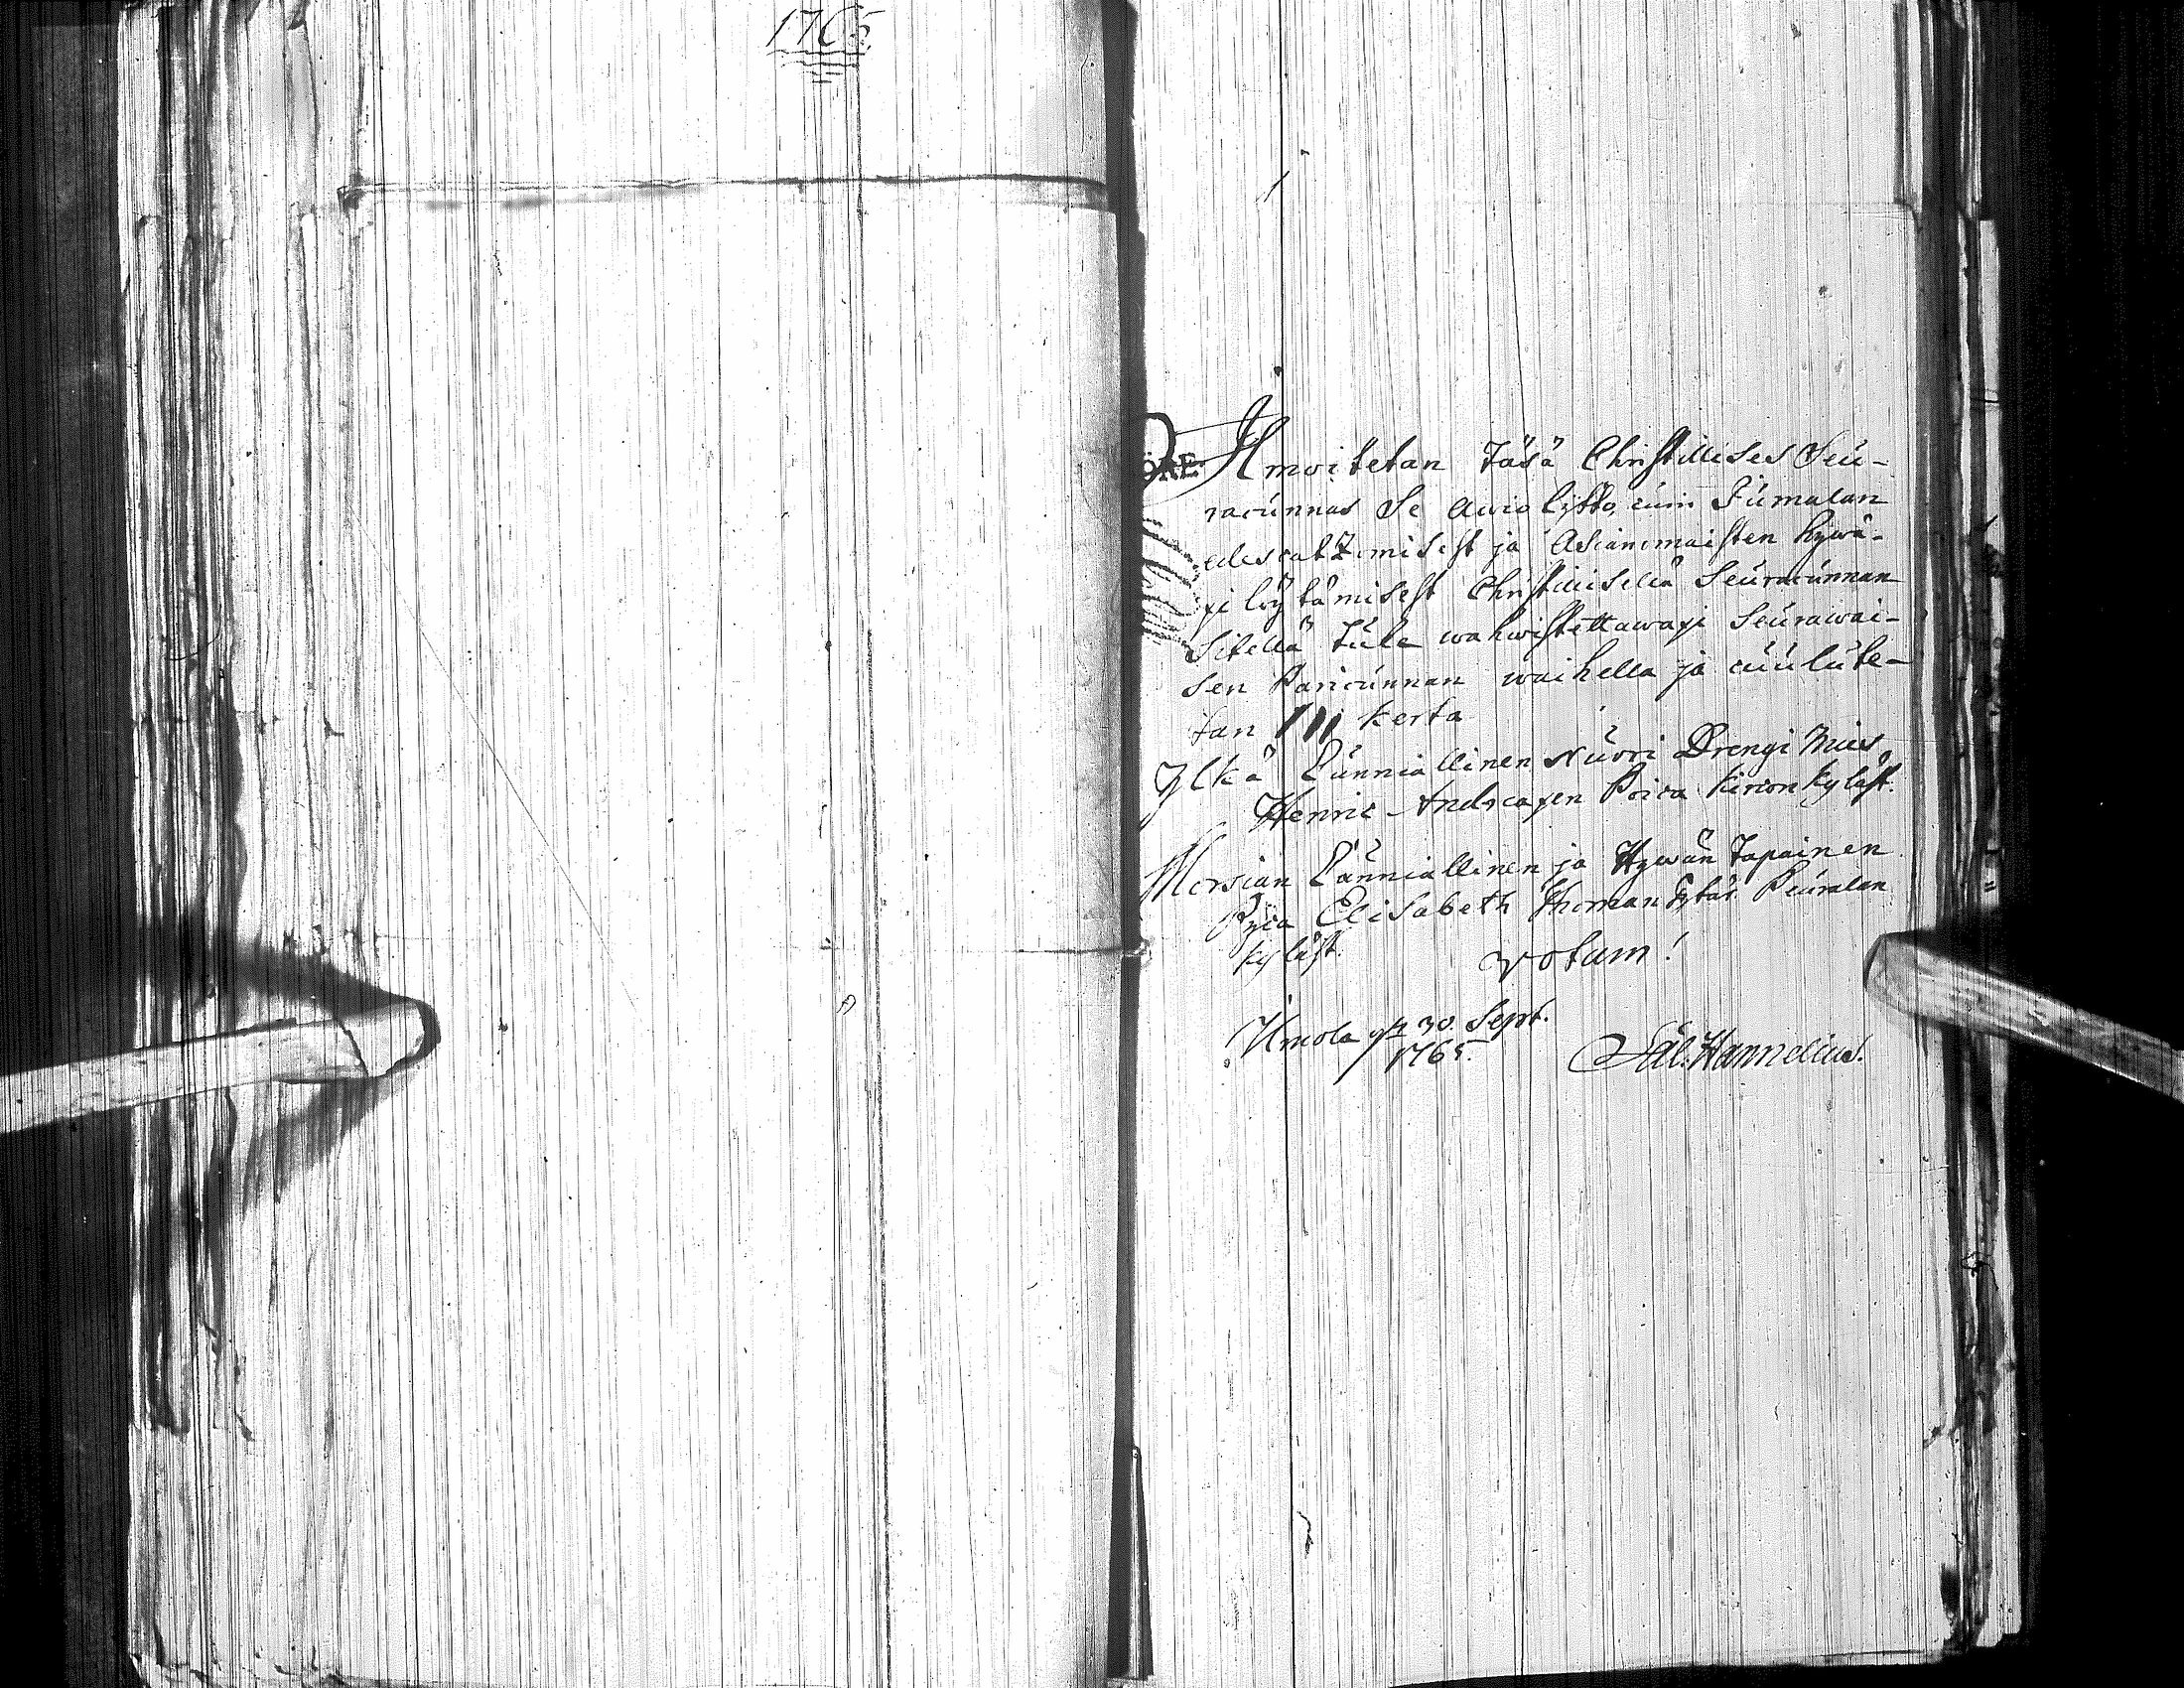 1765
ÖRE
Ilmoitetan täsä Christillises Seu-
racunnas Se Avio lijtto, cuin Jumalan
edescatzomisest ja Asianomaisten hywä-
xi löytämisest Christilisellä Seuracunnan
Sitellä tule wahwistettawaxi Seurawai-
sen Paricunnan waihella ja cuulute-
tan III kerta
Ylkä Cunniallinen Nuori Drengi Mies
Henric Andreaxen Poica Kircon kyläst.
Morsian Cunniallinen ja Hywän Tapainen
Pyica Elisabeth Thoman Tytär Peuralan
kyläst. Votum!
Uwmola 30. Sept.
1765. Sal. Hannelius.